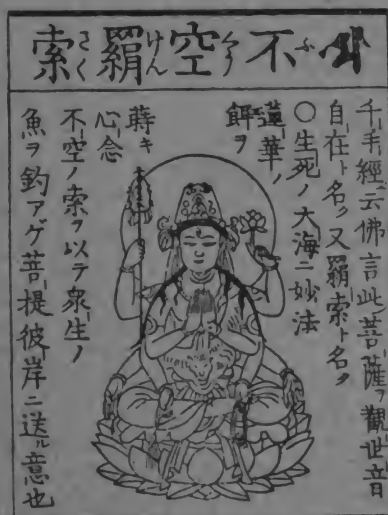 不空羂索
ふくうけんさく
千手經云佛言此菩薩ヲ觀世音
自在ト名ク又羂索ト名ク
○生死ノ大海ニ妙法
蓮華ノ
餌ヲ
蒔キ
心念
不空ノ索ヲ以テ衆生ノ
魚ヲ釣アゲ菩提彼岸ニ送ル意也